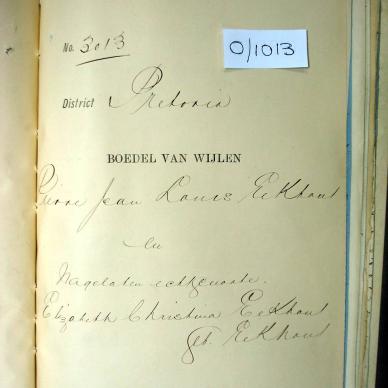 No. 3013
0/1013
District Pretoria
BOEDEL VAN WIJLEN
Pierre Jean Louis Eekhout
en
Nagelaten echtgenoote.
Elizabeth Christina Eekhout
geb. Eekhout